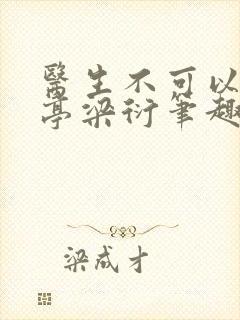 醫生不可以
亭梁衍筆趣
梁成才